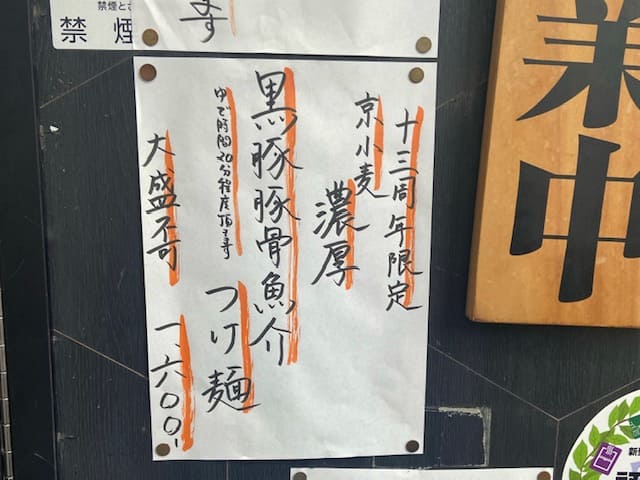 十三周年限定
京小麦
濃厚
黒豚豚骨魚介
つけ麺
ゆで時間20分程度頂きます
大盛不可
一、六〇〇、
ます
禁煙
業中
新